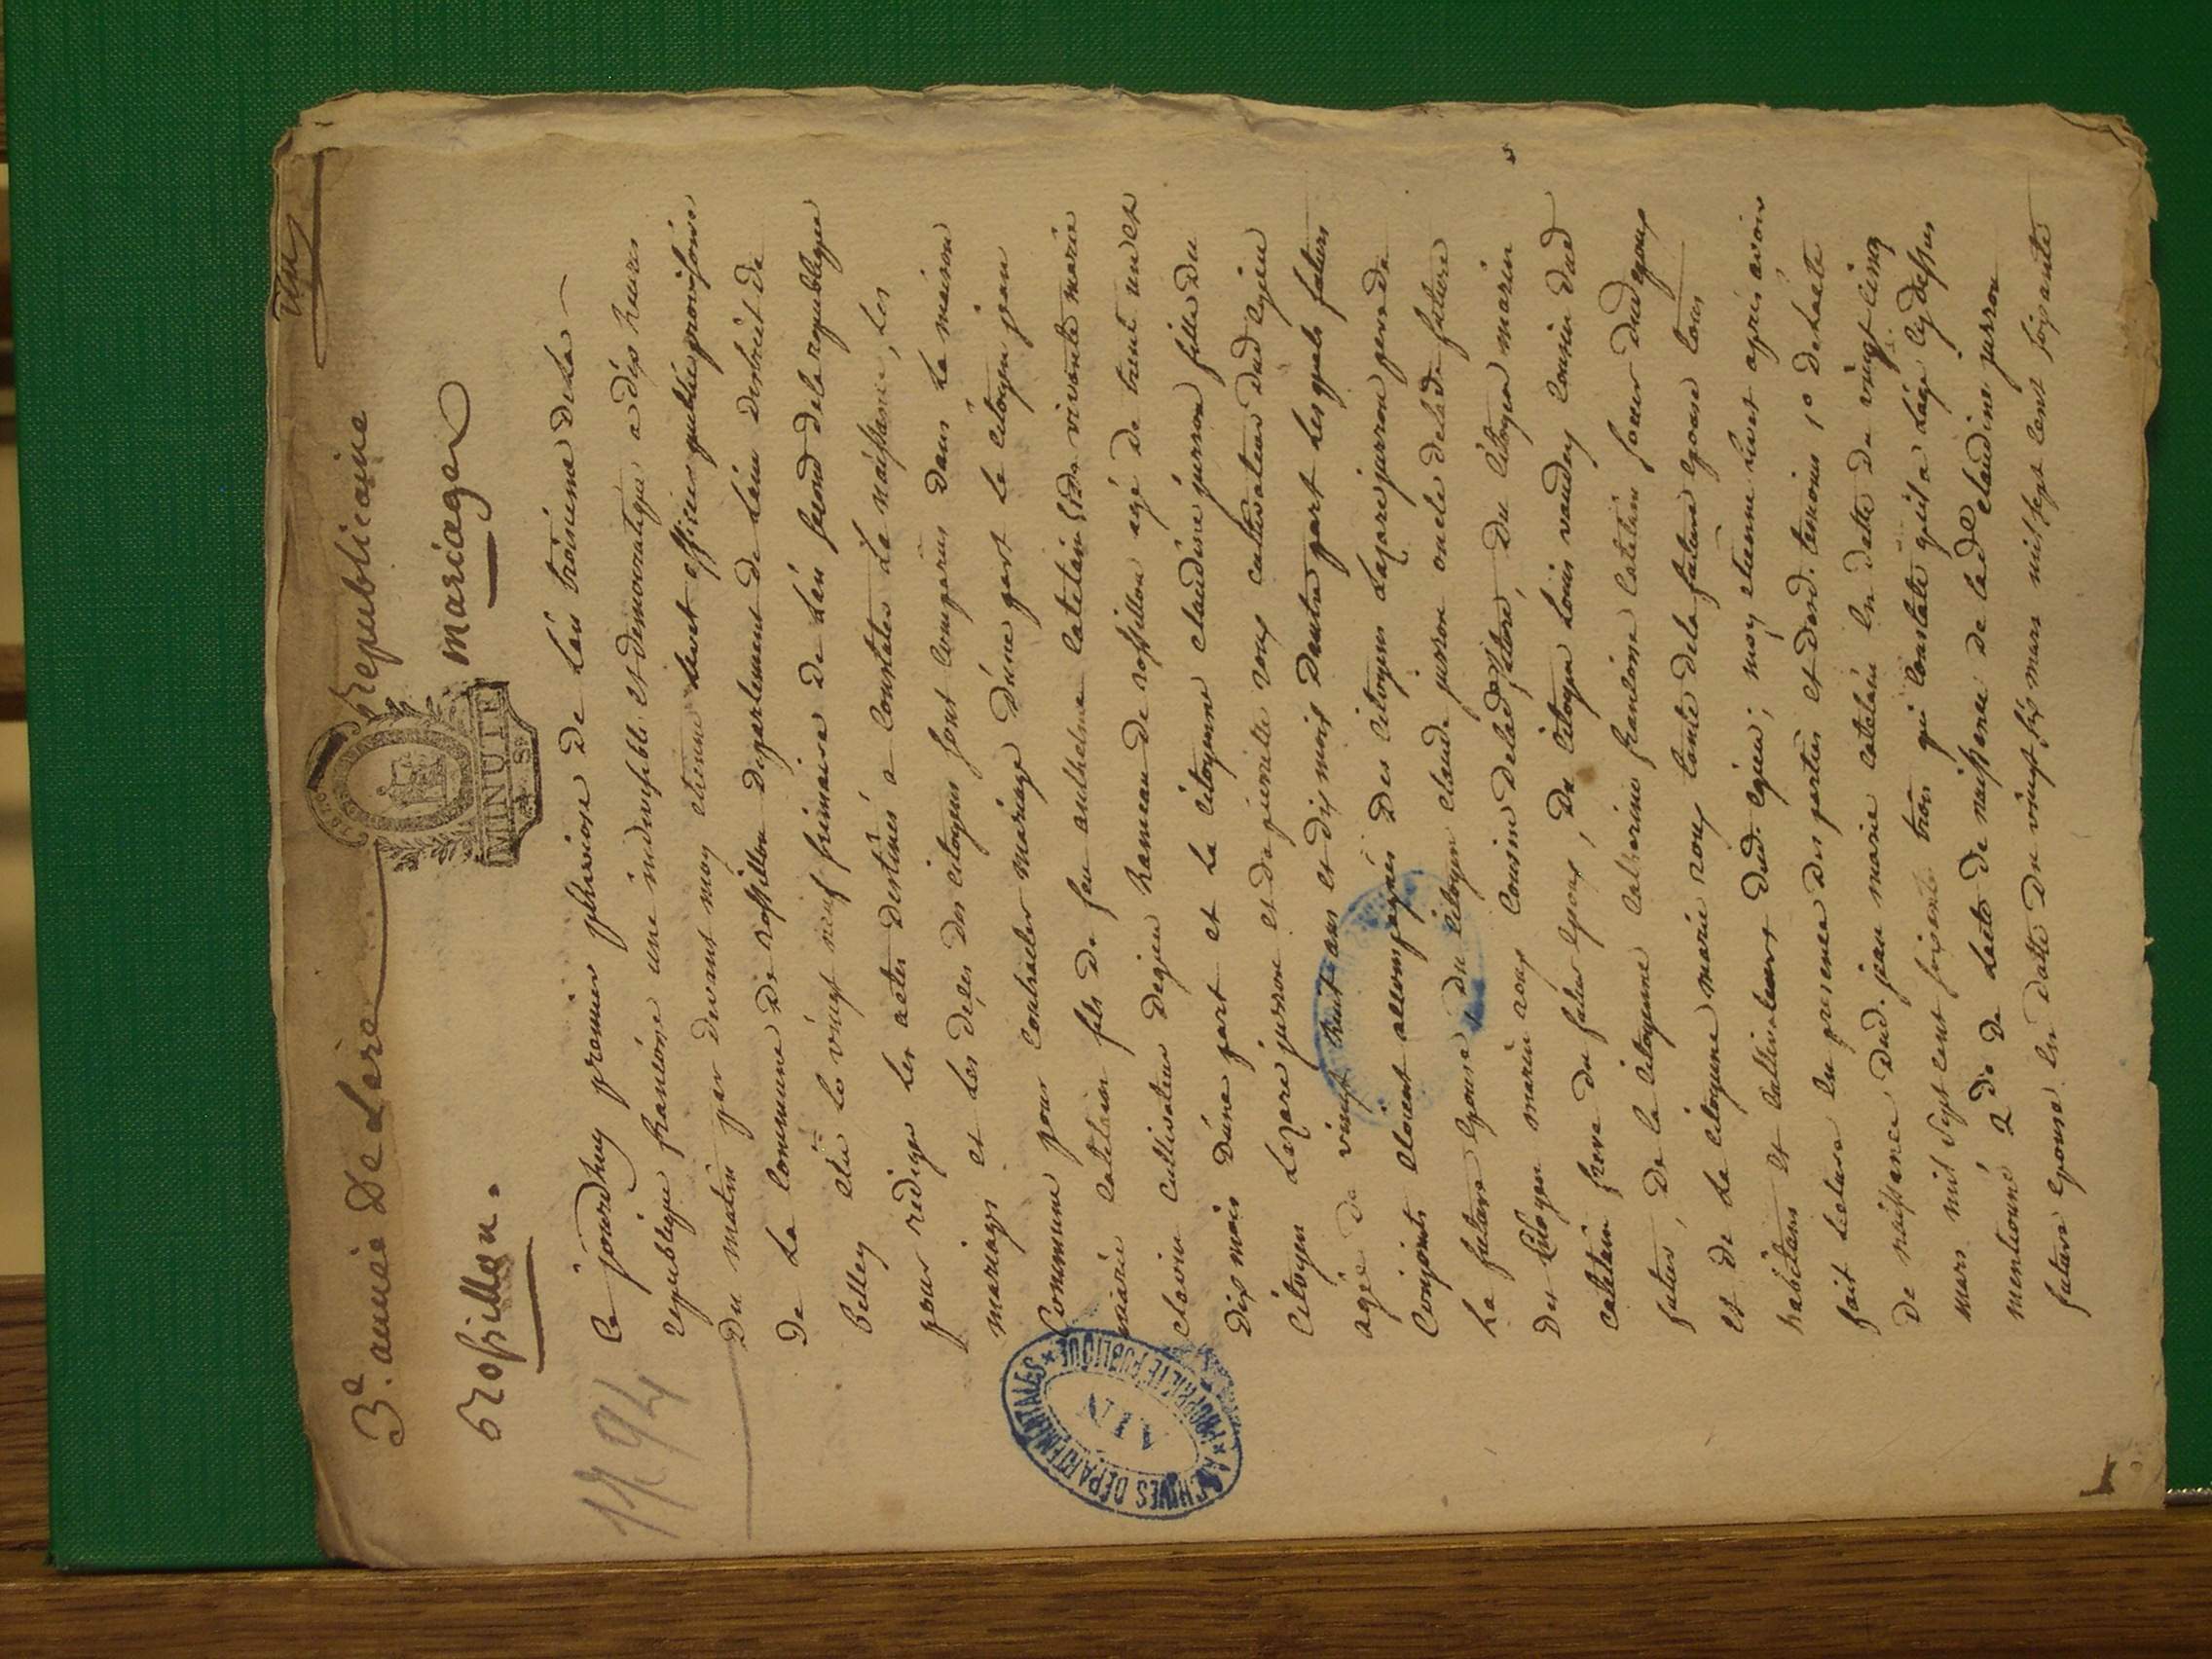 Un
3e. année De Lere Republicaine
MINUTE
rossillon. mariage
1794
Ce jourdhuy premier pluviose De Lan troisieme De La
republique francoise une indivisible et democratique a dix heures
Du matin par devant moy etienne Livet officier public provisoire
De La Commune De rossillon Departement De Lain District De
Belley elu Le vingt neuf frimaire De Lan second De la republique
pour rediger Les actes Destinés a Constater La naissance, Les
mariages et Les Deces Des Citoyens sont Comparus Dans La maison
Commune pour Contracter mariage Dune part Le Citoyen jean
marie Catelain fils De feu anthelme Catelain & De vivante marie
Clavin Cultivateur Degieu hameau De rossillon agé De trent un et
Dix mois Dune part et La Citoyenne Claudine jurron fille Du
Citoyen Lazare jurron et De pierrette roux Cultivateur Dud Egieu
agée De vingt huit ans et Dix mois Dautre part Lesquels futurs
Conjoints etoient accompagnés Des Citoyens Lazare jurron pere De
La future Epouse Du Citoyen Claude jurron oncle De lad future
Des Citoyen marin roux Cousin De lad future, Du Citoyen marin
Catelain frere Du futur Epoux, Du Citoyen Louis vaudey Cousin Dud
futur, De la Citoyenne Catherine francoise Catelain soeur Dud Epoux
et De La Citoyenne marie roux tante De la future Epouse tous
habitans et Cultivateurs Dud. Egieu; moy etienne Livet apres avoir
fait Lecture En presence Des parties et Desd. temoins 1o De Lacte
De naissance Dud. jean marie Catelain En datte Du vingt Cinq
mars mil Sept Cent soixante trois qui Constate quil a Lage Cy dessus
mentionné 2do De Lacte De naissance De lade Claudine jurron
future Epouse En datte Du vingt six mars mil sept Cent soixante
ARCHIVES DEPARTEMENTALES * PROPRIETE PUBLIQUE *
AIN